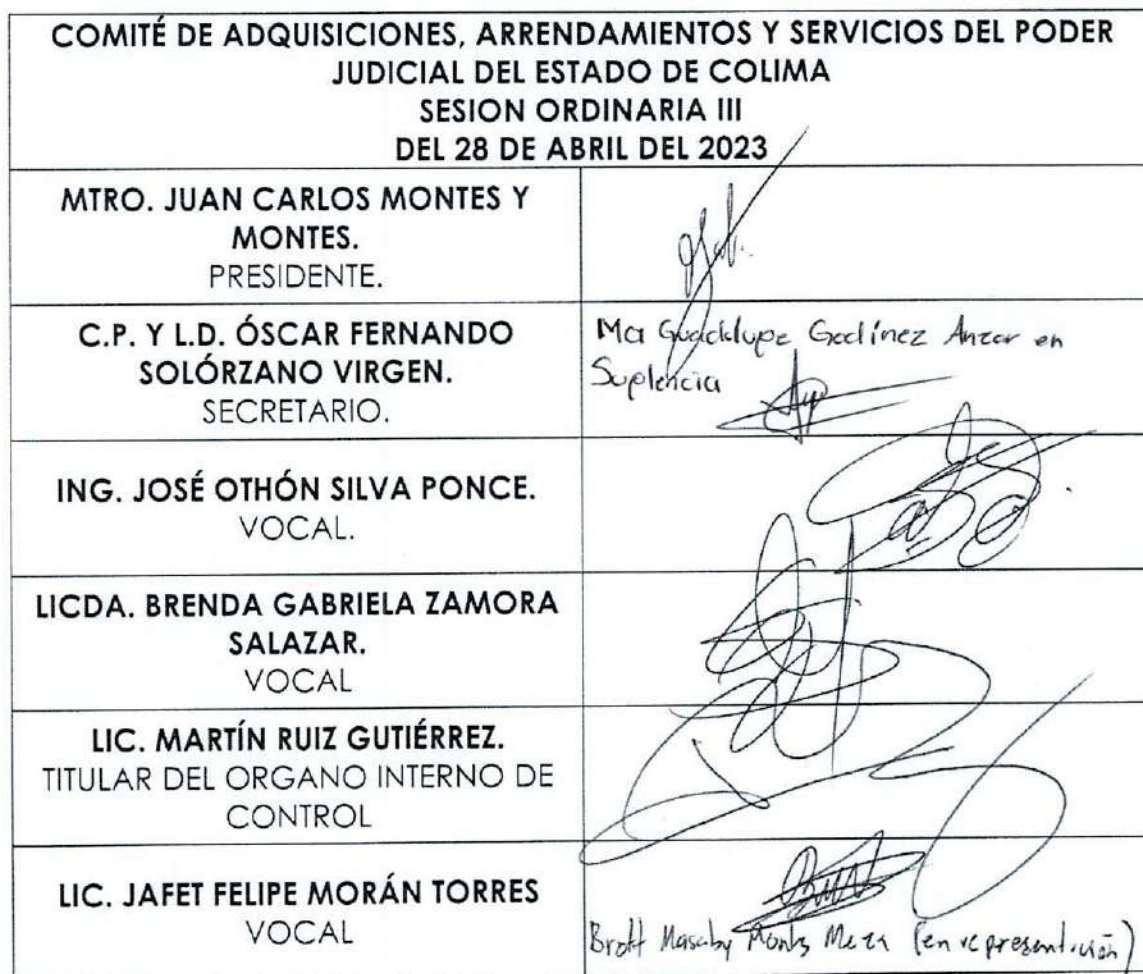 COMITÉ DE ADQUISICIONES, ARRENDAMIENTOS Y SERVICIOS DEL PODER
JUDICIAL DEL ESTADO DE COLIMA
SESION ORDINARIA III
DEL 28 DE ABRIL DEL 2023
MTRO. JUAN CARLOS MONTES Y
MONTES.
PRESIDENTE.
C.P. Y L.D. ÓSCAR FERNANDO
SOLÓRZANO VIRGEN.
SECRETARIO.
Ma Guadalupe Godínez Anzar en
Suplencia
ING. JOSÉ OTHÓN SILVA PONCE.
VOCAL.
LICDA. BRENDA GABRIELA ZAMORA
SALAZAR.
VOCAL
LIC. MARTÍN RUIZ GUTIÉRREZ.
TITULAR DEL ORGANO INTERNO DE
CONTROL
LIC. JAFET FELIPE MORÁN TORRES
VOCAL
(en representación)